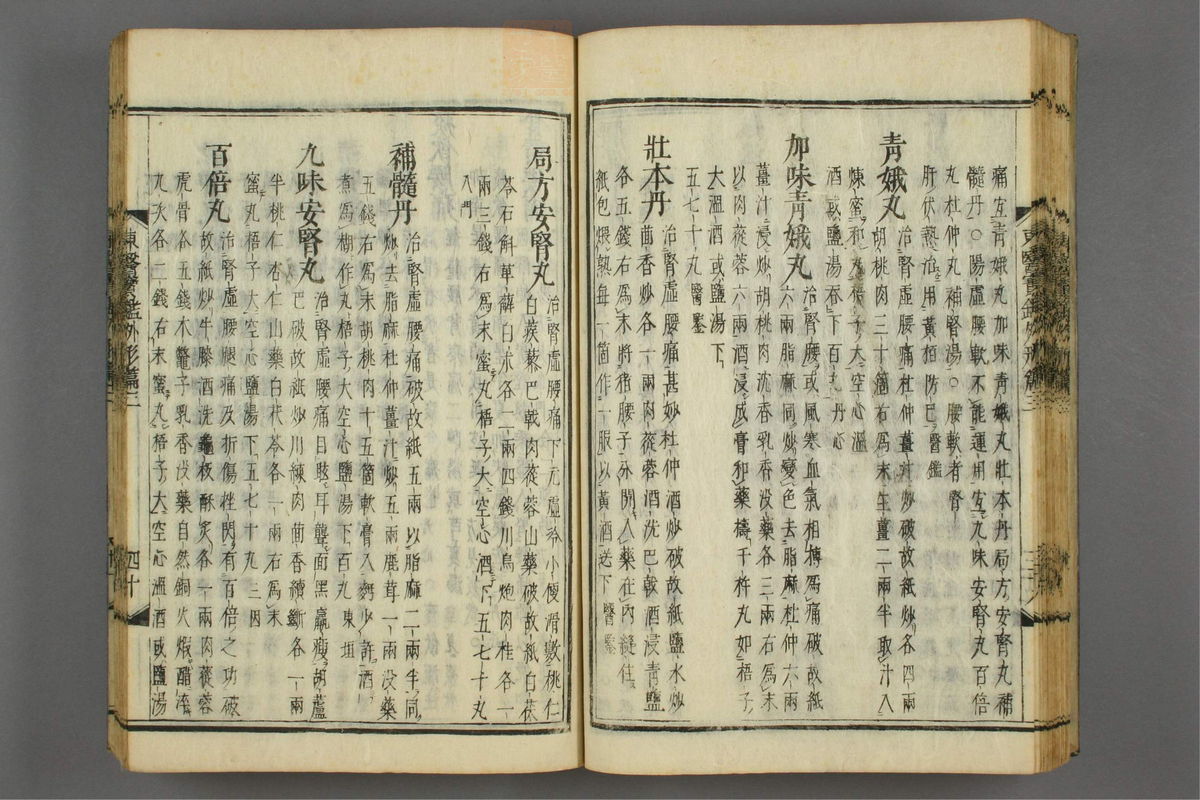 痛宜青娥丸加味青娥丸壯本丹局方安腎丸補
髓丹○陽虛腰軟不能運用宜九味安腎丸百倍
丸杜仲丸補腎湯○腰軟者腎
肝伏熱治用黃栢防已醫鑑
青娥丸
治腎虛腰痛杜仲薑汁炒破故紙炒各四兩
胡桃肉三十箇右爲末生薑二兩半取汁入
煉蜜和丸梧子大空心溫
酒或鹽湯吞下百丸丹心
加味青娥丸
治腎腰或風寒血氣相搏爲痛破故紙
六兩脂麻同炒變色去脂麻杜仲六兩
薑汁浸炒胡桃肉沈香乳香没藥各三兩右爲末
以肉蓯蓉六兩酒浸成膏和藥擣千杵丸如梧子
大溫酒或鹽湯下
五七十丸醫鑒
壯本丹
治腎虛腰痛甚妙杜仲酒炒破故紙鹽水炒
茴香炒各一兩肉蓯蓉酒洗巴戟酒浸青鹽
各五錢右爲末將猪腰子分開入藥在內縫住
紙包煨熟每一箇作一服以黃酒送下醫鑒
局方安腎丸
治腎虛腰痛下元虛冷小便滑數桃仁
白蒺藜巴戟肉蓯蓉山藥破故紙白茯
苓石斛萆薢白朮各二兩四錢川烏炮肉桂各一
兩三錢右爲末蜜丸梧子大空心酒下五七十丸
入門
補髓丹
治腎虛腰痛破故紙五兩以脂麻二兩半同
炒去脂麻杜仲薑汁炒五兩鹿茸一兩没藥
五錢右爲末胡桃肉十五箇軟膏入麪少許酒
煮爲糊作丸梧子大空心鹽湯下百丸東垣
九味安腎丸
治腎虛腰痛目眩耳聾面黑羸瘦胡蘆
巴破故紙炒川練肉茴香續斷各一兩
半桃仁杏仁山藥白茯苓各一兩右爲末
蜜丸梧子大空心鹽湯下五七十丸三因
百倍丸
治腎虛腰腿痛及折傷挫閃有百倍之功破
故紙炒牛膝酒洗龜板酥炙各一兩肉蓯蓉
虎骨各五錢木鼈子乳香没藥自然銅火煆醋淬
九次各二錢右末蜜丸梧子大空心溫酒或鹽湯
東醫寶鑑外形篇三
四十